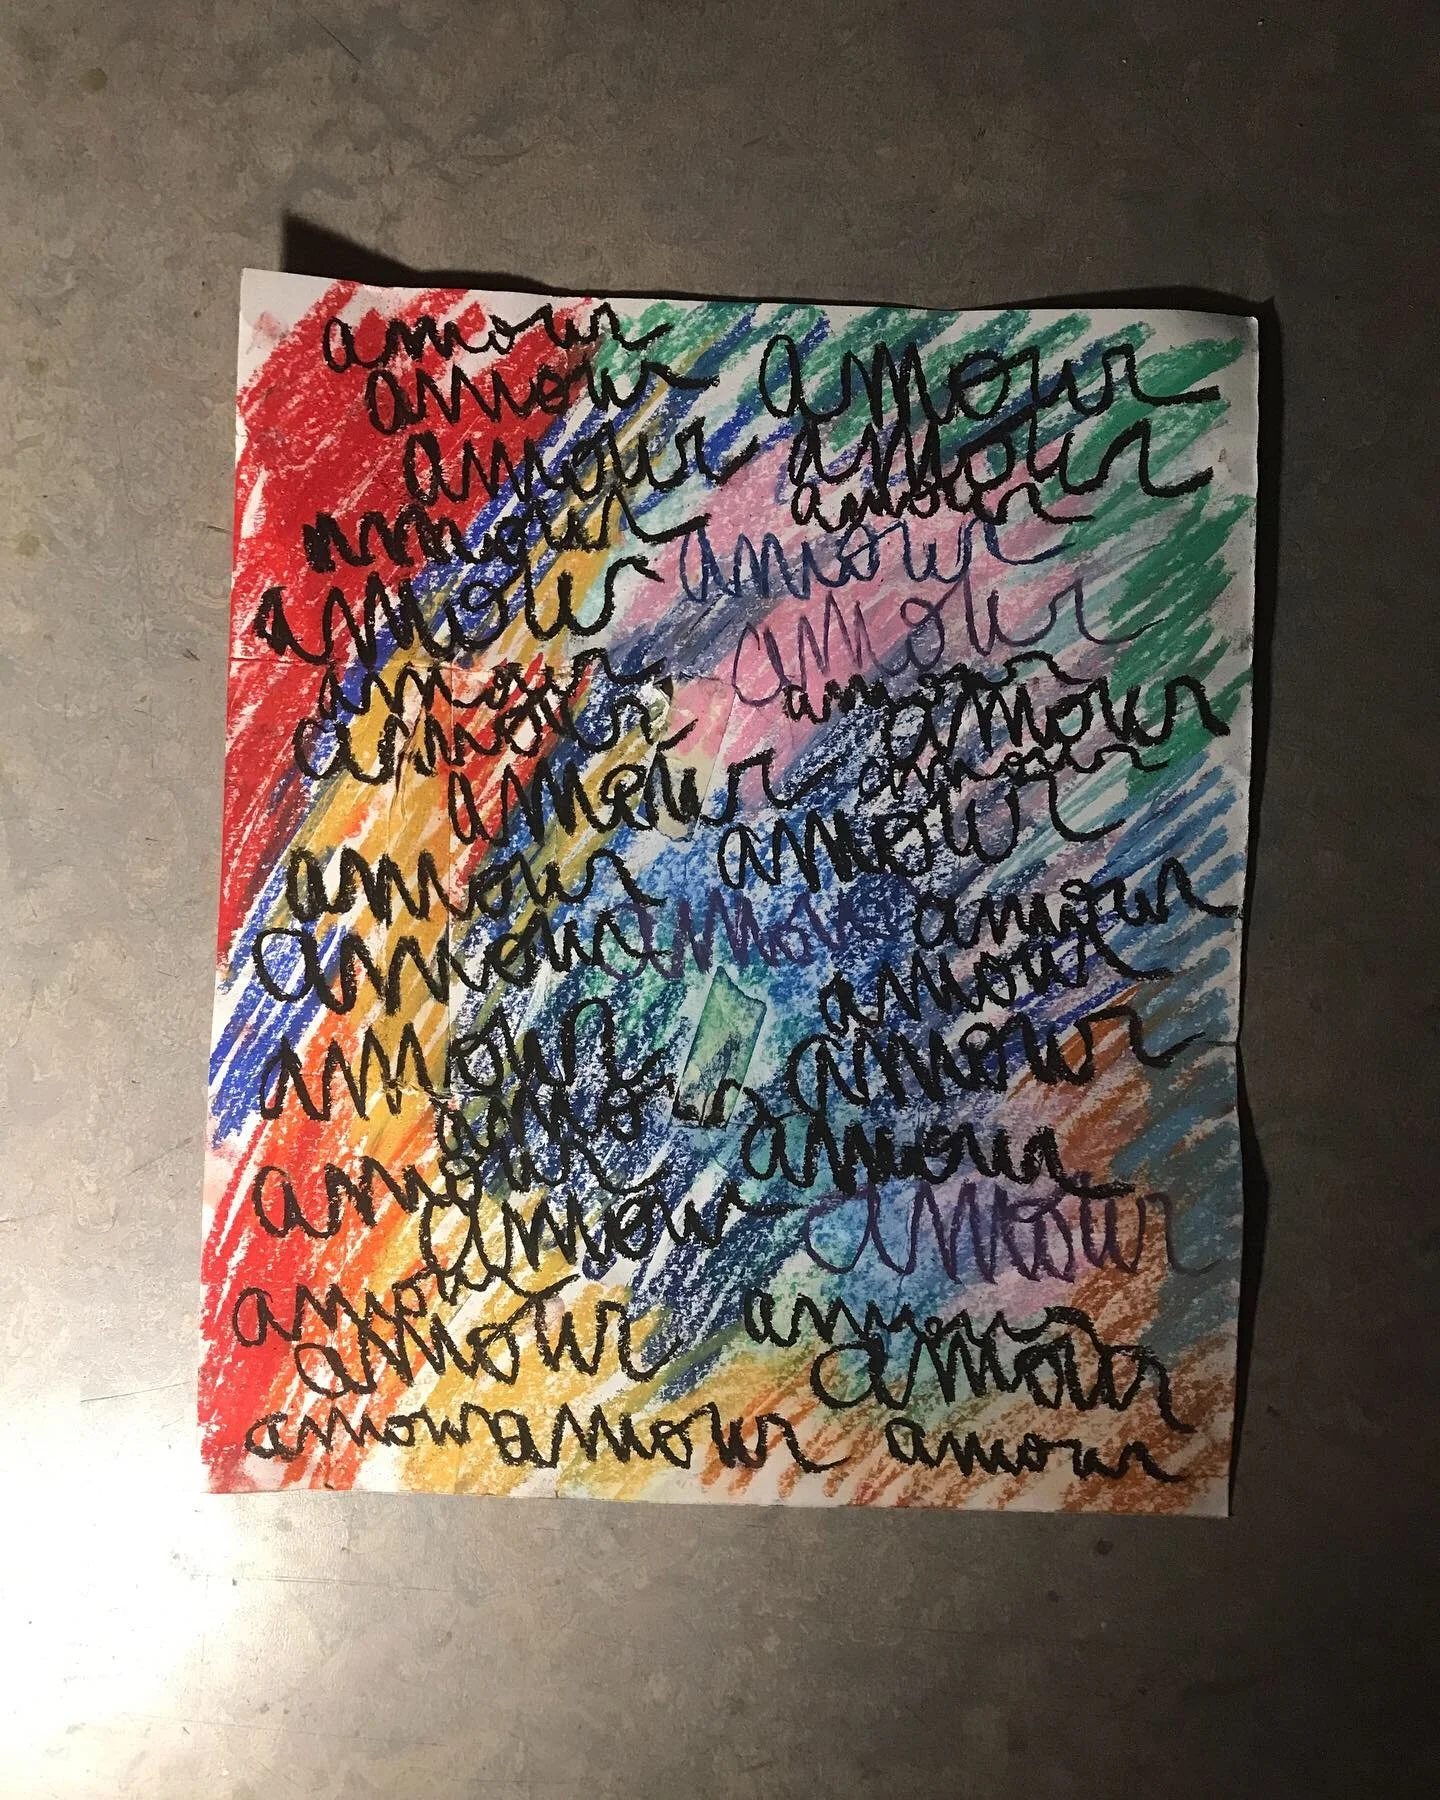 amour
amour amour
amour amour
amour amour
amour amour
amour amour
amour amour
amour amour
amour amour
amour amour
amour amour amour
amour amour
amour amour
amour amour
amour amour
amour amour
amour amour
amour amour
amour amour amour